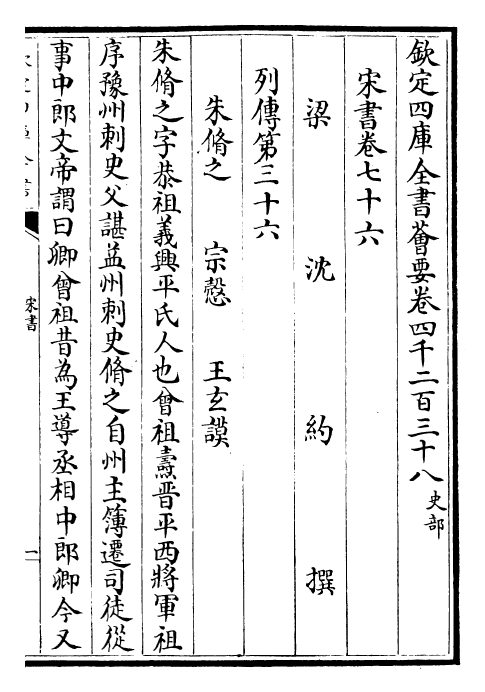 欽定四庫全書薈要卷四千二百三十八史部
宋書卷七十六
梁沈約撰
列傳第三十六
朱脩之 宗慤 王玄謨
朱脩之字恭祖義興平氏人也曾祖燾晋平西將軍祖
序豫州刺史父諶益州刺史脩之自州主簿遷司徒從
事中郎文帝謂曰卿曾祖昔為王導丞相中郎卿今又
宋書
一